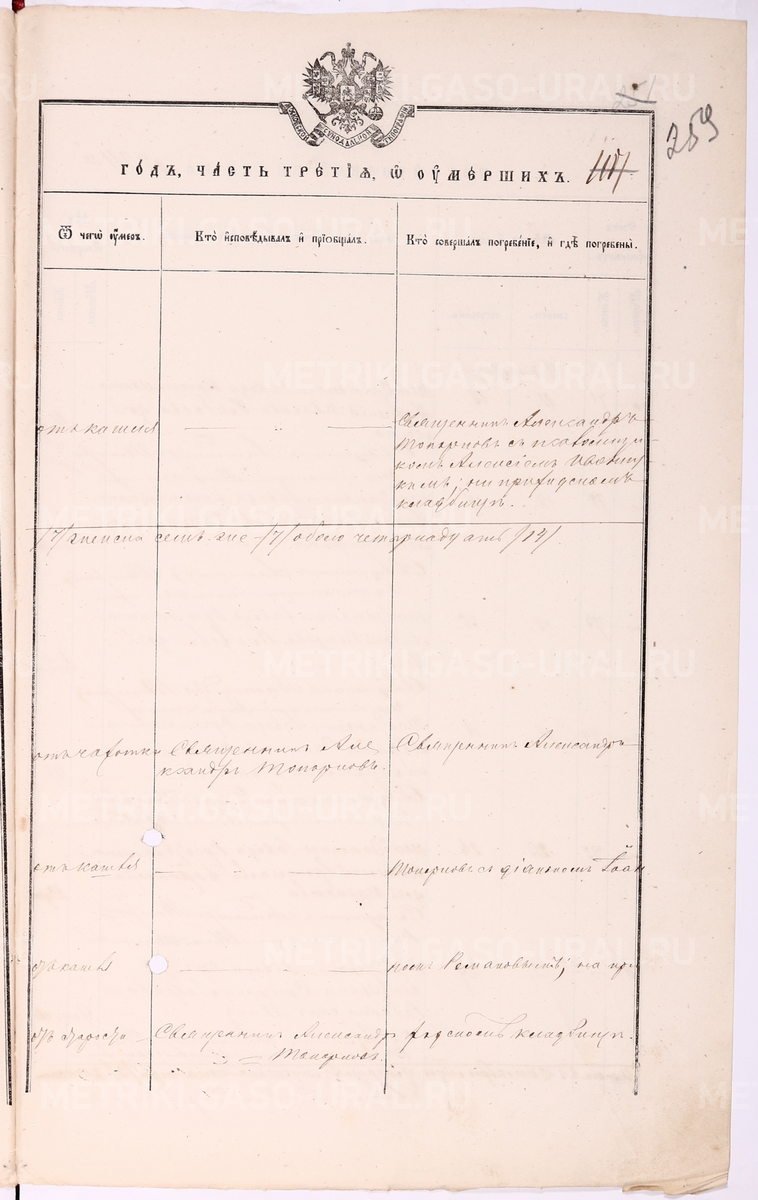 259
МОСКОВСКОЙ СѴНОДАЛЬНОЙ ТИПОГРАФІИ
ГОДЪ, ЧАСТЬ ТРЕТІЯ, Ѡ ОУМЕРШИХЪ.
Ѿ чегѡ оумеръ.
Кто исповѣдывалъ и пріобщалъ.
Кто совершалъ погребеніе, и гдѣ погребены.
отъ кашля
Священникъ Александръ
Топорковъ съ псаломщи-
комъ Алексіемъ
на приходскомъ
кладбищѣ.
/7/ женска семь /7/ обоего четырнадцать /14/.
отъ чахотки
Священникъ Але
ксандръ Топорковъ.
Священникъ Александръ
отъ кашля
Топорковъ съ діакономъ Іоан
отъ кашля
номъ Романовымъ; на при
отъ старости
Священникъ Александръ
Топорковъ.
ходскомъ кладбищѣ.
METRIKI.GASO-URAL.RU